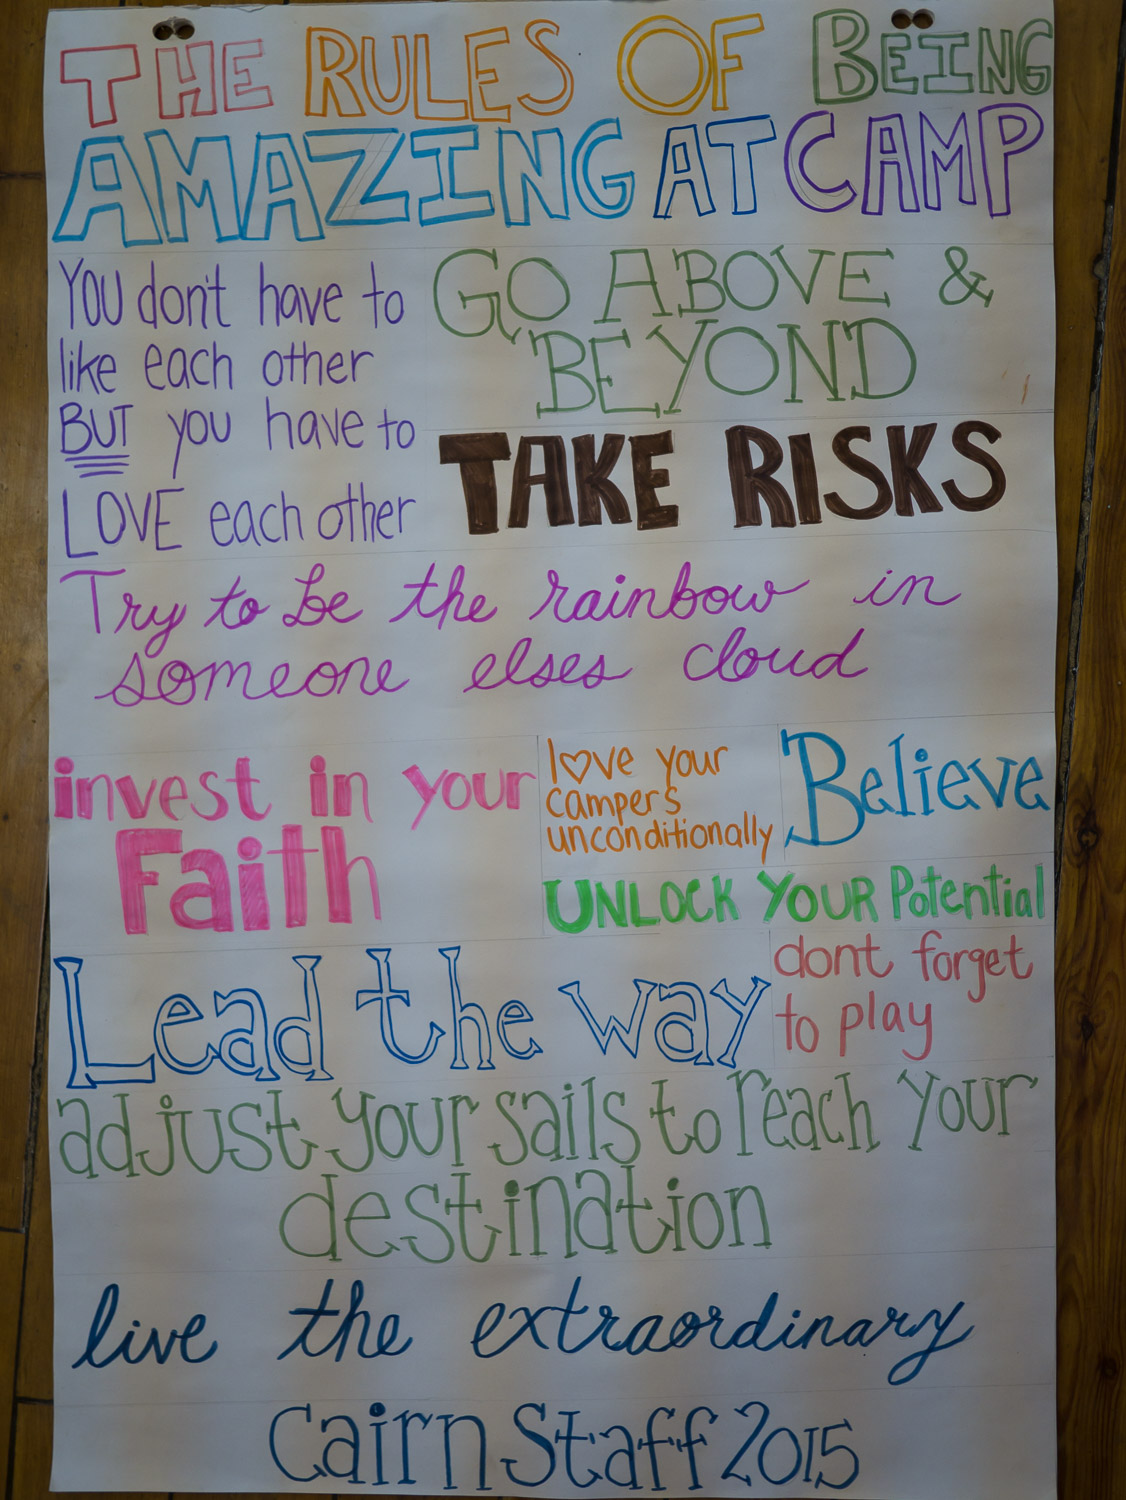 THE RULES OF BEING
AMAZING AT CAMP
YOU don't have to
like each other
BUT you have to
LOVE each other
GO ABOVE &
BEYOND
TAKE RISKS
Try to be the rainbow in
someone elses cloud
invest in your
Faith
love your
campers
unconditionally
Believe
UNLOCK YOUR Potential
Lead the way
dont forget
to play
adjust your sails to reach your
destination
live the extraordinary
Cairn Staff 2015